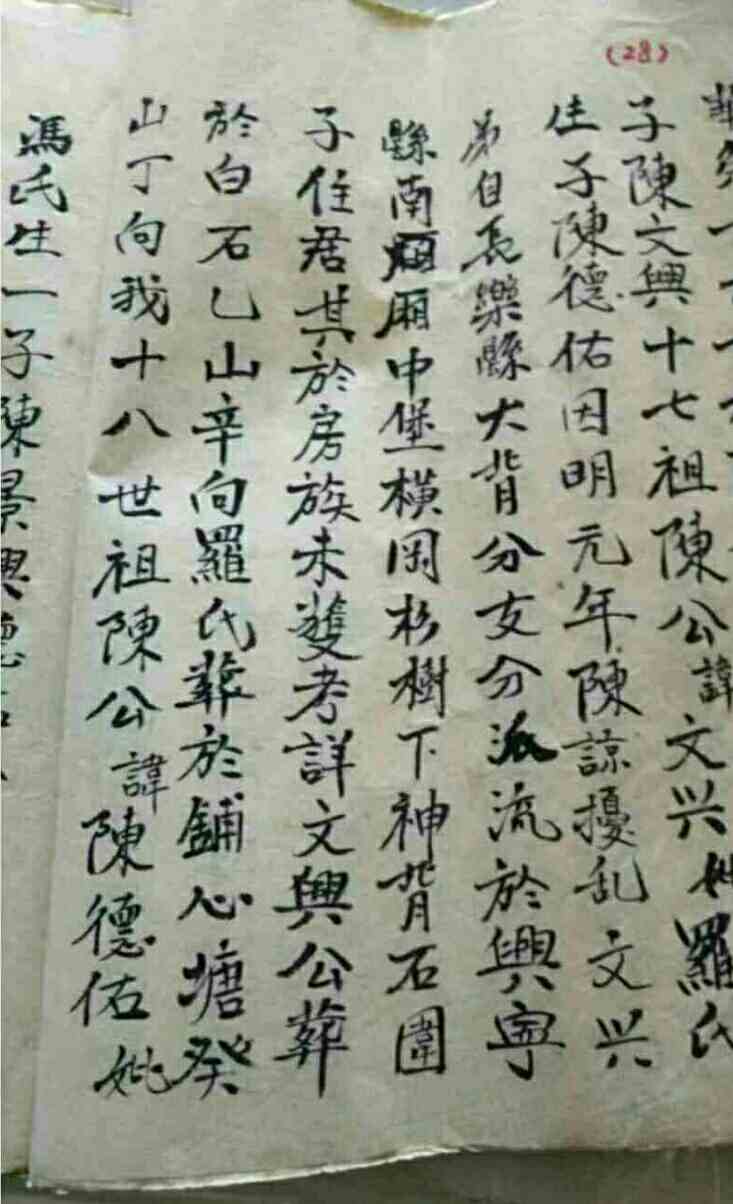 (28)
子陳文興十七祖陳公諱文兴妣羅氏
生子陳德佑因明元年陳諒擾乱文兴
弟自長樂縣大背分支分派流於興寧
縣南厢中堡横岡杉樹下神背石圍
子住君其於房族未獲考詳文興公葬
於白石乙山辛向羅氏葬於鋪心塘癸
山丁向我十八世祖陳公諱陳德佑妣
馮氏生一子陳景興德